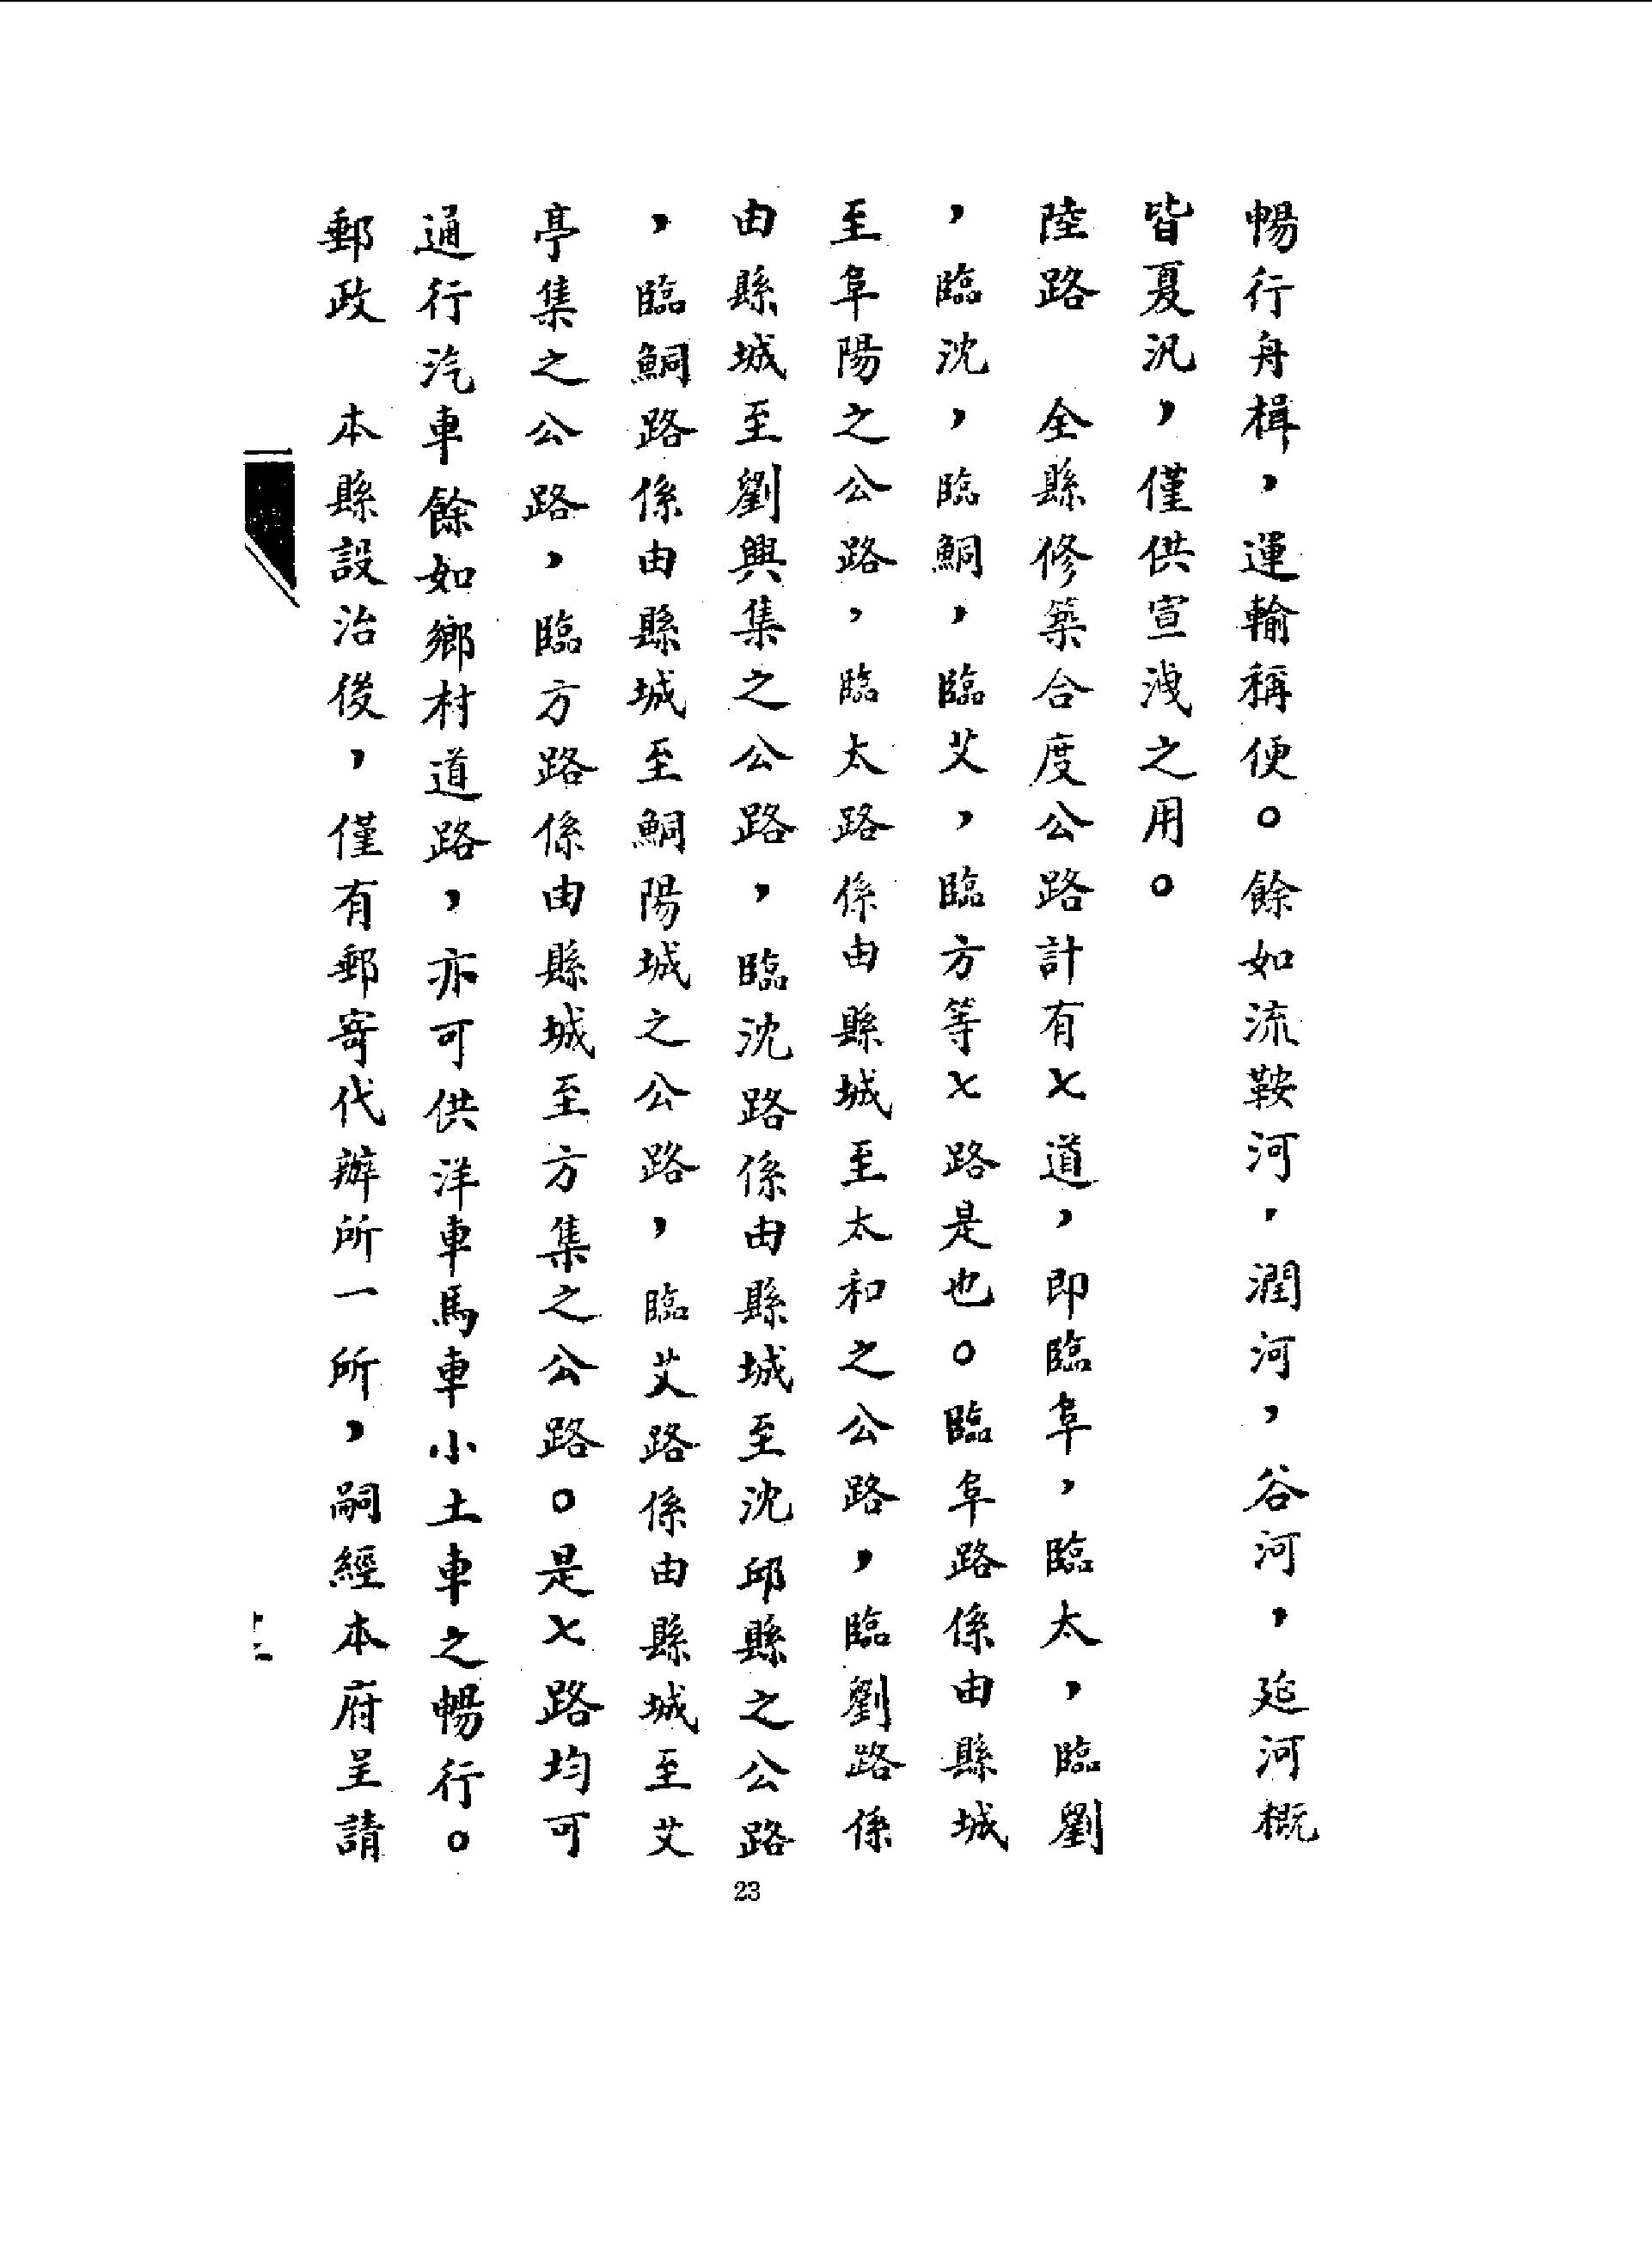 暢行舟楫，運輸稱便。餘如流鞍河，潤河，谷河，延河概
皆夏汛，僅供宣洩之用。
陸路　全縣修築合度公路計有七道，即臨阜，臨太，臨劉
，臨沈，臨鮦，臨艾，臨方等七路是也。臨阜路係由縣城
至阜陽之公路，臨太路係由縣城至太和之公路，臨劉路係
由縣城至劉興集之公路，臨沈路係由縣城至沈邱縣之公路
，臨鮦路係由縣城至鮦陽城之公路，臨艾路係由縣城至艾
亭集之公路，臨方路係由縣城至方集之公路。是七路均可
通行汽車餘如鄉村道路，亦可供洋車馬車小土車之暢行。
郵政　本縣設治後，僅有郵寄代辦所一所，嗣經本府呈請
23